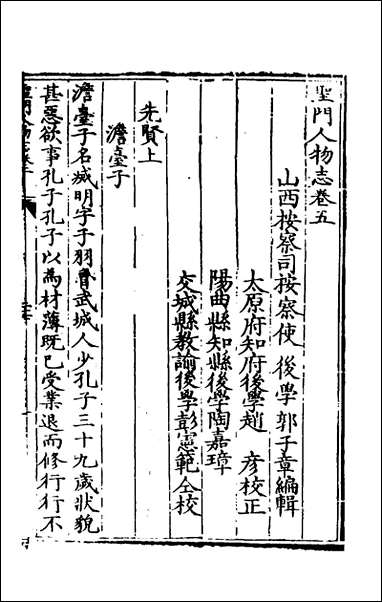 聖門人物志卷五
山西按察司按察使後學郭子章編輯
太原府知府後學趙彥校正
陽曲縣知縣後學陶嘉璋
交城縣教諭後學彭憲範仝校
先賢上
澹臺子
澹臺子名滅明字子羽魯武城人少孔子三十九歲狀貌
甚惡欲事孔子孔子以為材薄既已受業退而修行行不